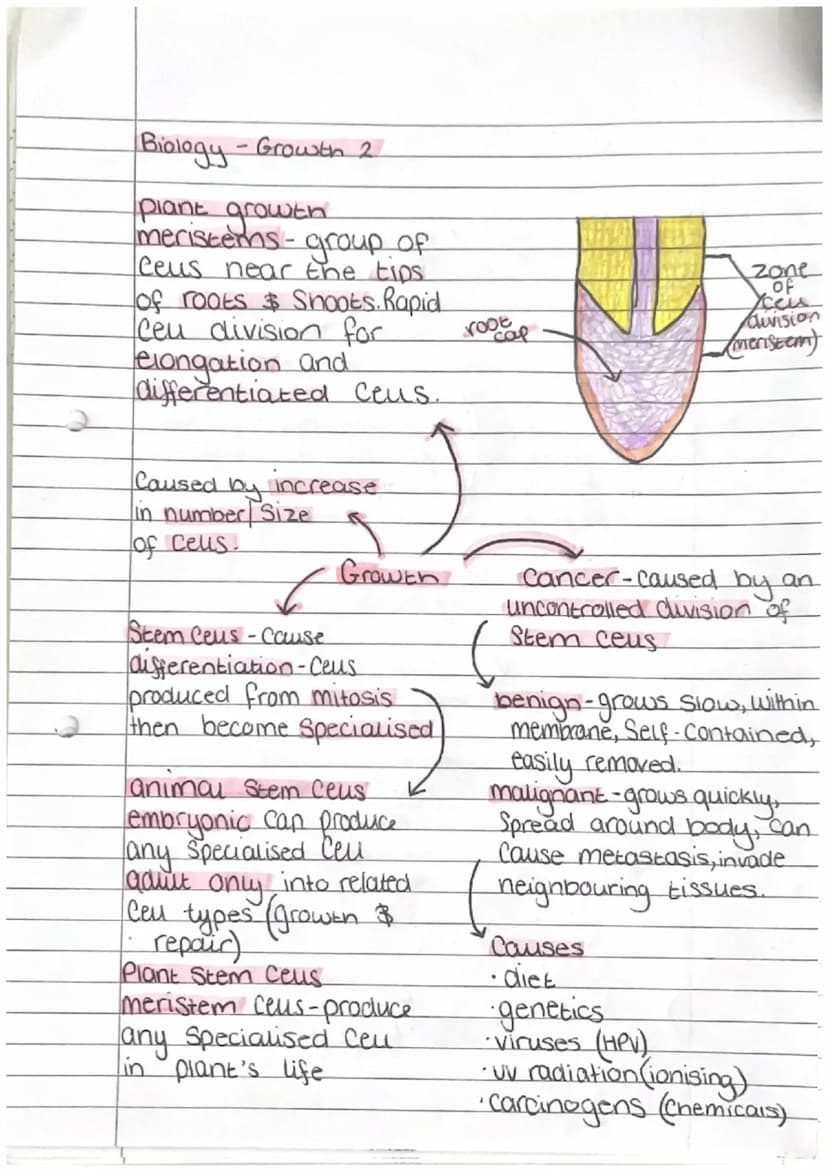 Biology - Growth 2
plant growth
meristems - group of
cells near the tips
of roots & shoots. Rapid
cell division for
elongation and
differentiated cells.
root
cap
zone
of
cell
division
(meristem)
Caused by increase
in number/size
of cells.
Growth
Stem cells - cause
differentiation - cells
produced from mitosis
then become specialised
animal stem cells
embryonic can produce
any specialised cell
adult only into related
cell types (growth &
repair)
Plant stem cells
meristem cells - produce
any specialised cell
in plant's life
cancer - caused by an
uncontrolled division of
stem cells
benign - grows slow, within
membrane, self-contained,
easily removed.
malignant - grows quickly,
spread around body, can
cause metastasis, invade
neighbouring tissues.
Causes
· diet
· genetics
· viruses (HPV)
· uv radiation (ionising)
· carcinogens (chemicals)